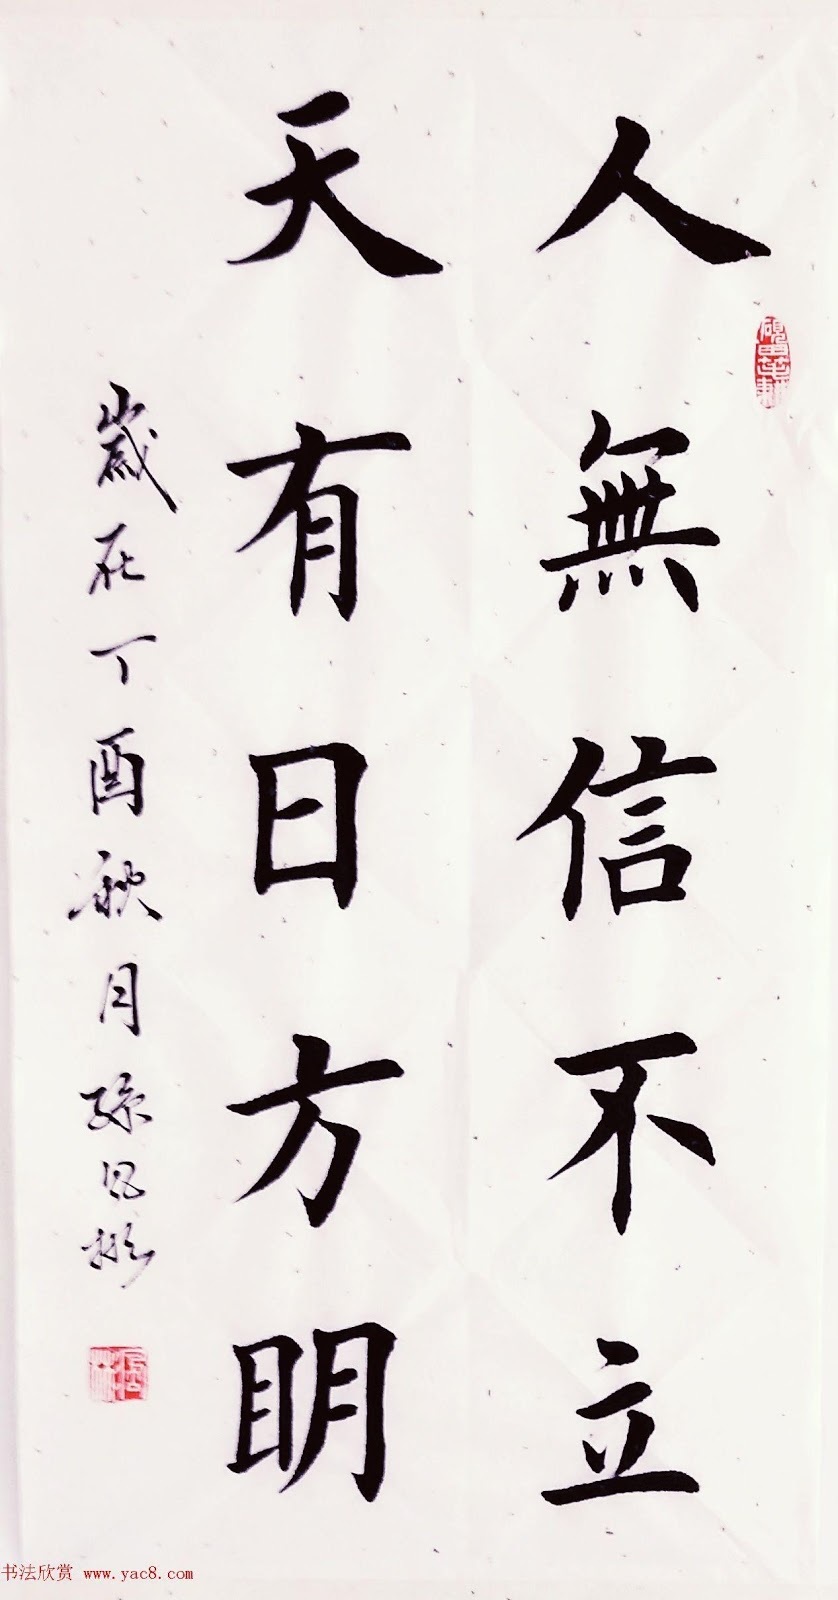 人無信不立
硯田筆耕
天有日方眀
歲在丁酉秋月孫
书法欣赏 www.yac8.com